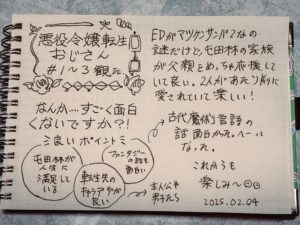 悪役令嬢転生
おじさん
#1〜3観た。
なんか…すごく面白
くないですか?!
良いポイント
屯田林が
人生に
満足して
いる
ファンタジーの話も
面白い
転生先の
キャラデザが
良い
主人公や
男子たち
EDがマツケンサンバなの
謎だけど、屯田林の家族
が父親とめっちゃ応援して
いて良い。2人があたり前に
愛されていて楽しい!
古代魔術言語の
話面白かった。へーって
なった。
これからも
楽しみ〜
2025.02.04